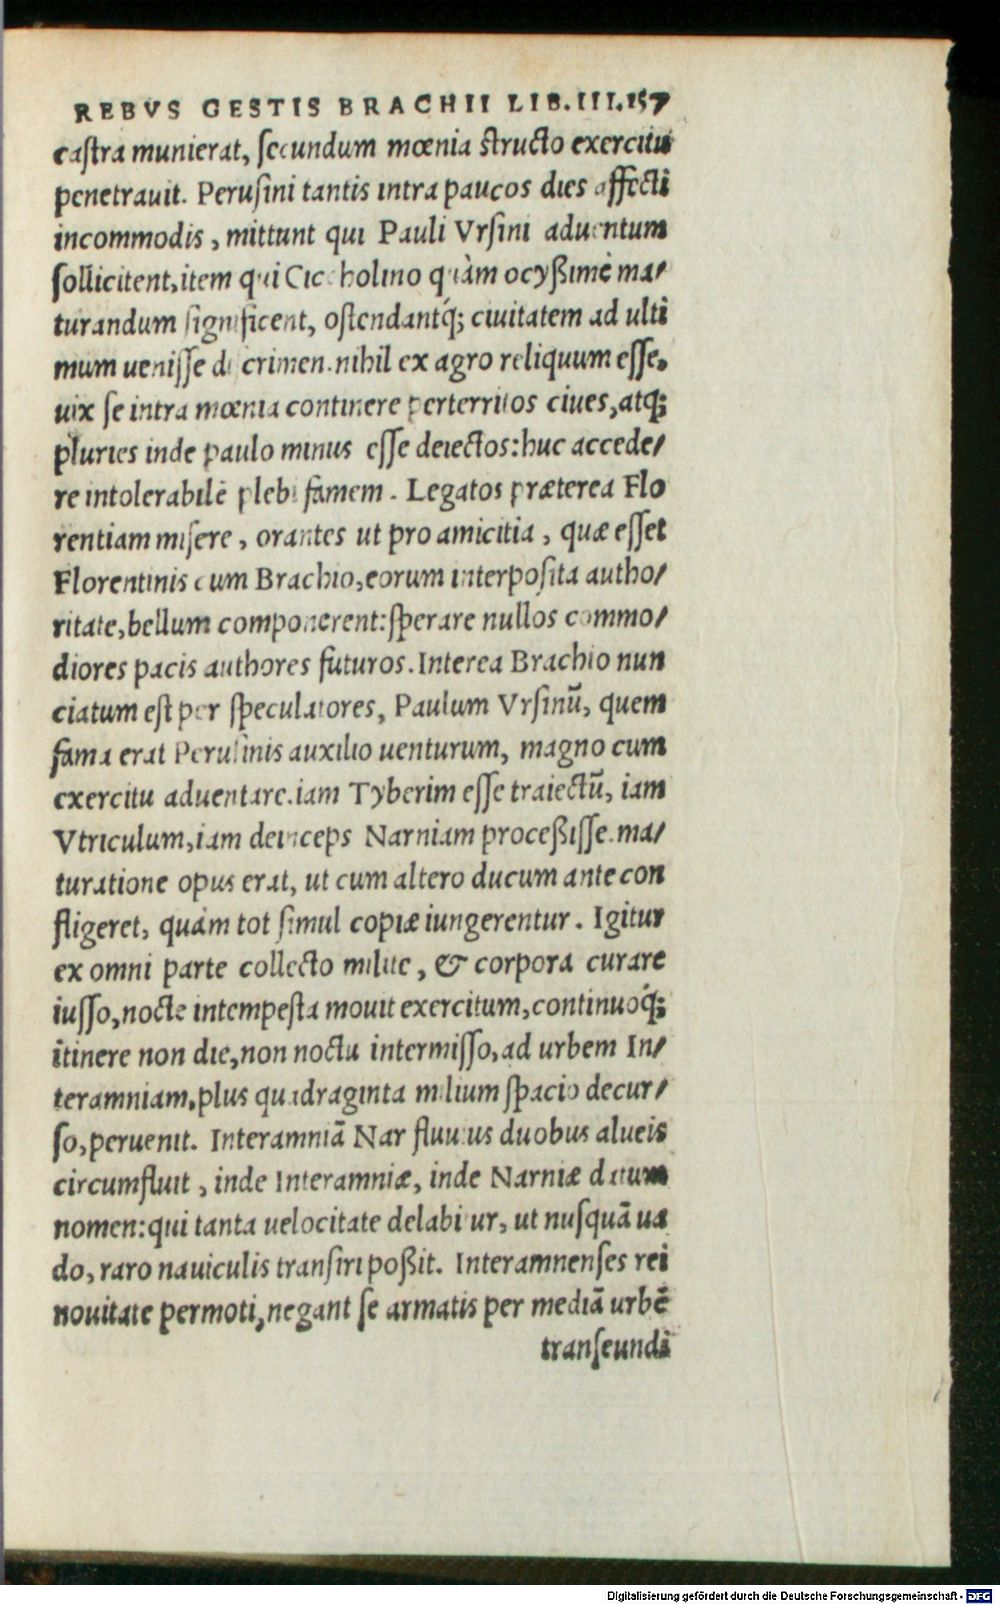 REBVS GESTIS BRACHII LIB.III.157
castra munierat, secundum mœnia structo exercitu
penetrauit. Perusini tantis intra paucos dies affecti
incommodis, mittunt qui Pauli Vrsini aduentum
sollicitent, item qui Ciccholino quàm ocyßimè ma/
turandum significent, ostendantq́; ciuitatem ad ulti
mum uenisse discrimen. nihil ex agro reliquum esse,
uix se intra mœnia continere perterritos ciues, atq;
pluries inde paulo minus esse deiectos: huc accede/
re intolerabilē plebi famem. Legatos præterea Flo
rentiam misere, orantes ut pro amicitia, quæ esset
Florentinis cum Brachio, eorum interposita autho/
ritate, bellum componerent: sperare nullos commo/
diores pacis authores futuros. Interea Brachio nun
ciatum est per speculatores, Paulum Vrsinū, quem
fama erat Perusinis auxilio uenturum, magno cum
exercitu aduentare. iam Tyberim esse traiectū, iam
Vtriculum, iam deinceps Narniam proceßisse. ma/
turatione opus erat, ut cum altero ducum ante con
fligeret, quàm tot simul copiæ iungerentur. Igitur
ex omni parte collecto milite, & corpora curare
iusso, nocte intempesta mouit exercitum, continuoq́;
itinere non die, non noctu intermisso, ad urbem In/
teramniam, plus quadraginta milium spacio decur/
so, peruenit. Interamniā Nar fluuius duobus alueis
circumfluit, inde Interamniæ, inde Narniæ datum
nomen: qui tanta uelocitate delabitur, ut nusquā ua
do, raro nauiculis transiri poßit. Interamnenses rei
nouitate permoti, negant se armatis per mediā urbē
transeundi
Digitalisierung gefördert durch die Deutsche Forschungsgemeinschaft - DFG